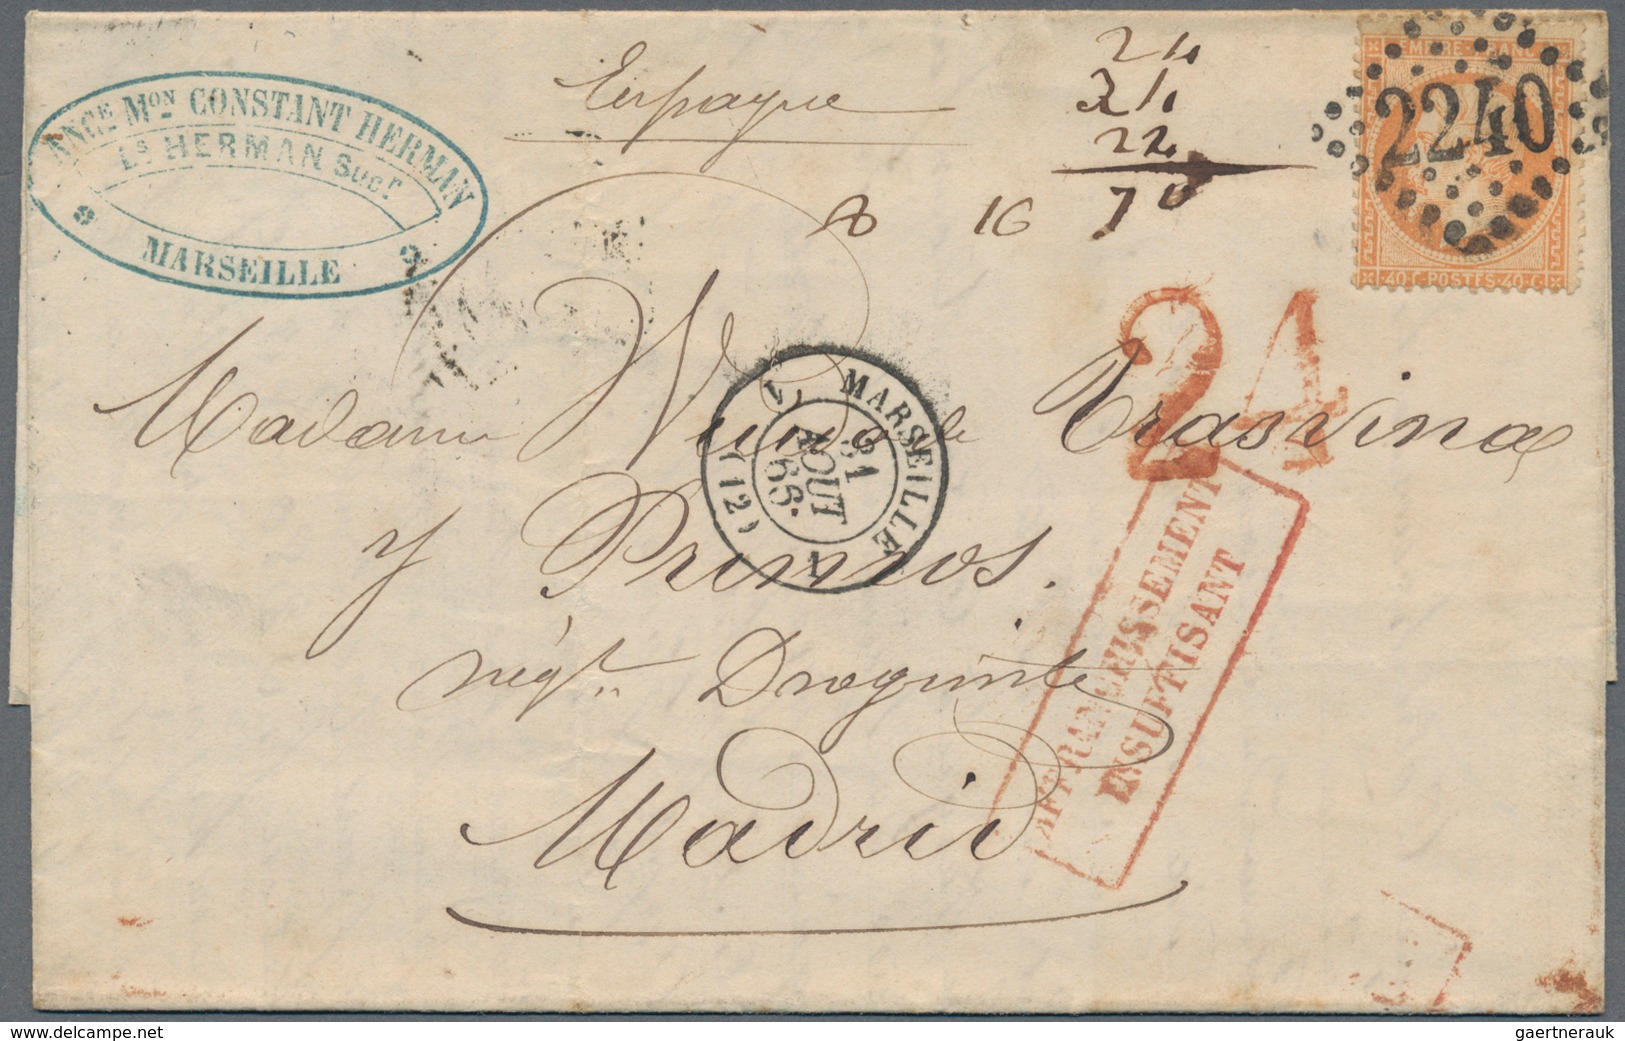 ANCE MON CONSTANT HERMAN
Ls HERMAN Sucr
MARSEILLE
Espagne
24
24
22
70
8 16
EMPIRE FRANC
2240
40 C POSTES 40 C
24
Madame Veuve de Trasvina
y Primos.
négt. Droguiste
Madrid
MARSEILLE
31
AOUT
68
(12)
AFFRANCHISSEMENT
INSUFFISANT
delcampe.net
gaertnerauk